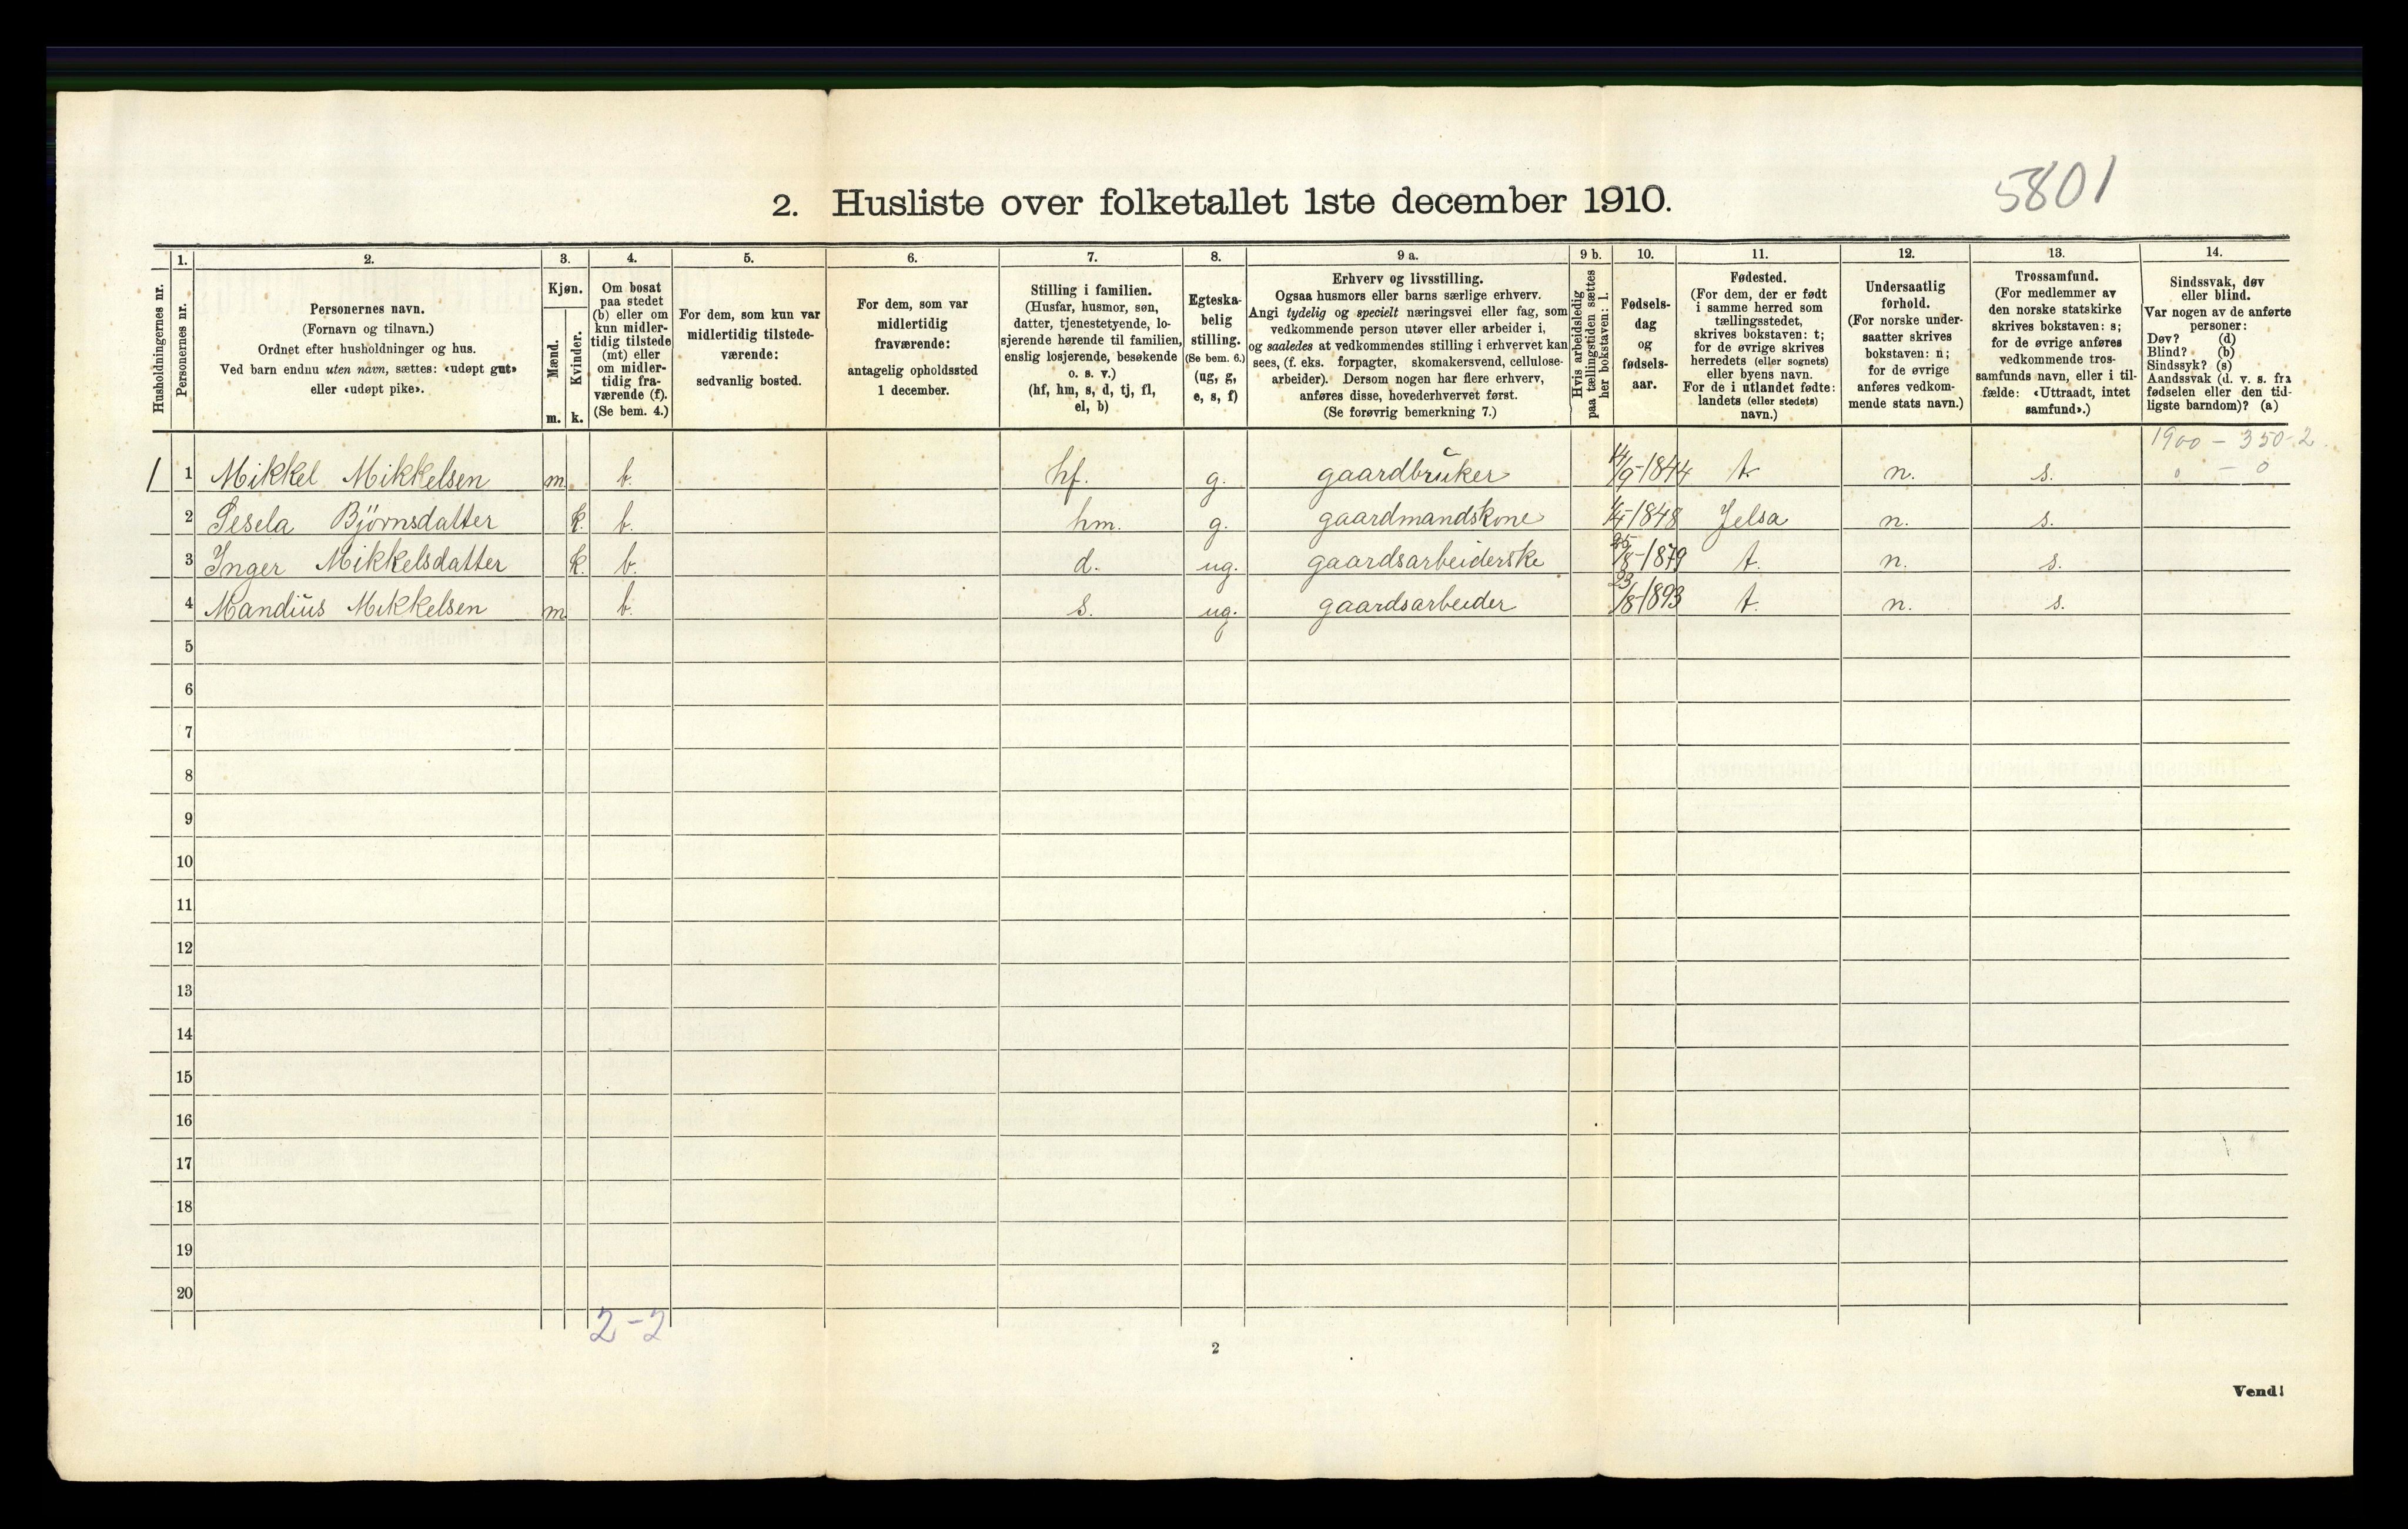 5801
2. Husliste over folketallet 1ste december 1910.
Husholdningernes nr.
1.
Personernes nr.
2.
Personernes navn.
(Fornavn og tilnavn.)
Ordnet efter husholdninger og hus.
Ved barn endnu uten navn, sættes: «udøpt gut»
eller «udøpt pike».
3.
Kjøn.
Mænd.
m.
Kvinder.
k.
4.
Om bosat
paa stedet
(b) eller om
kun midler-
tidig tilstede
(mt) eller
om midler-
tidig fra-
værende (f).
(Se bem. 4.)
5.
For dem, som kun var
midlertidig tilstede-
værende:
sedvanlig bosted.
6.
For dem, som var
midlertidig
fraværende:
antagelig opholdssted
1 december.
7.
Stilling i familien.
(Husfar, husmor, søn,
datter, tjenestetyende, lo-
sjerende hørende til familien,
enslig losjerende, besøkende
o. s. v.)
(hf, hm, s, d, tj, fl,
el, b)
8.
Egteska-
belig
stilling.
(Se bem. 6.)
(ug, g,
e, s, f)
9 a.
Erhverv og livsstilling.
Ogsaa husmors eller barns særlige erhverv.
Angi tydelig og specielt næringsvei eller fag, som
vedkommende person utøver eller arbeider i,
og saaledes at vedkommendes stilling i erhvervet kan
sees, (f. eks. forpagter, skomakersvend, cellulose-
arbeider). Dersom nogen har flere erhverv,
anføres disse, hovederhvervet først.
(Se forøvrig bemerkning 7.)
9 b.
Hvis arbeidsledig
paa tællingstiden sættes
her bokstaven: l.
10.
Fødsels-
dag
og
fødsels-
aar.
11.
Fødested.
(For dem, der er født
i samme herred som
tællingsstedet,
skrives bokstaven: t;
for de øvrige skrives
herredets (eller sognets)
eller byens navn.
For de i utlandet fødte:
landets (eller stedets)
navn.)
12.
Undersaatlig
forhold.
(For norske under-
saatter skrives
bokstaven: n;
for de øvrige
anføres vedkom-
mende stats navn.)
13.
Trossamfund.
(For medlemmer av
den norske statskirke
skrives bokstaven: s;
for de øvrige anføres
vedkommende tros-
samfunds navn, eller i til-
fælde: «Uttraadt, intet
samfund».)
14.
Sindssvak, døv
eller blind.
Var nogen av de anførte
personer:
Døv? (d)
Blind? (b)
Sindssyk? (s)
Aandssvak (d. v. s. fra
fødselen eller den tid-
ligste barndom)? (a)
1900 – 350-2
0 – 0
1 1 Mikkel Mikkelsen m. b. hf. g. gaardbruker 14/9-1844 t. n. s.
2 Sesela Björnsdatter k. b. hm. g. gaardmandskone 1848 Jelsa n. s.
3 Inger Mikkelsdatter k. b. d. ug. gaardsarbeiderske 25/8-1879 t. n. s.
4 Mandius Mikkelsen m. b. s. ug. gaardsarbeider 23/8-1893 t. n. s.
5
6
7
8
9
10
11
12
13
14
15
16
17
18
19
20
2-2
2
Vend!